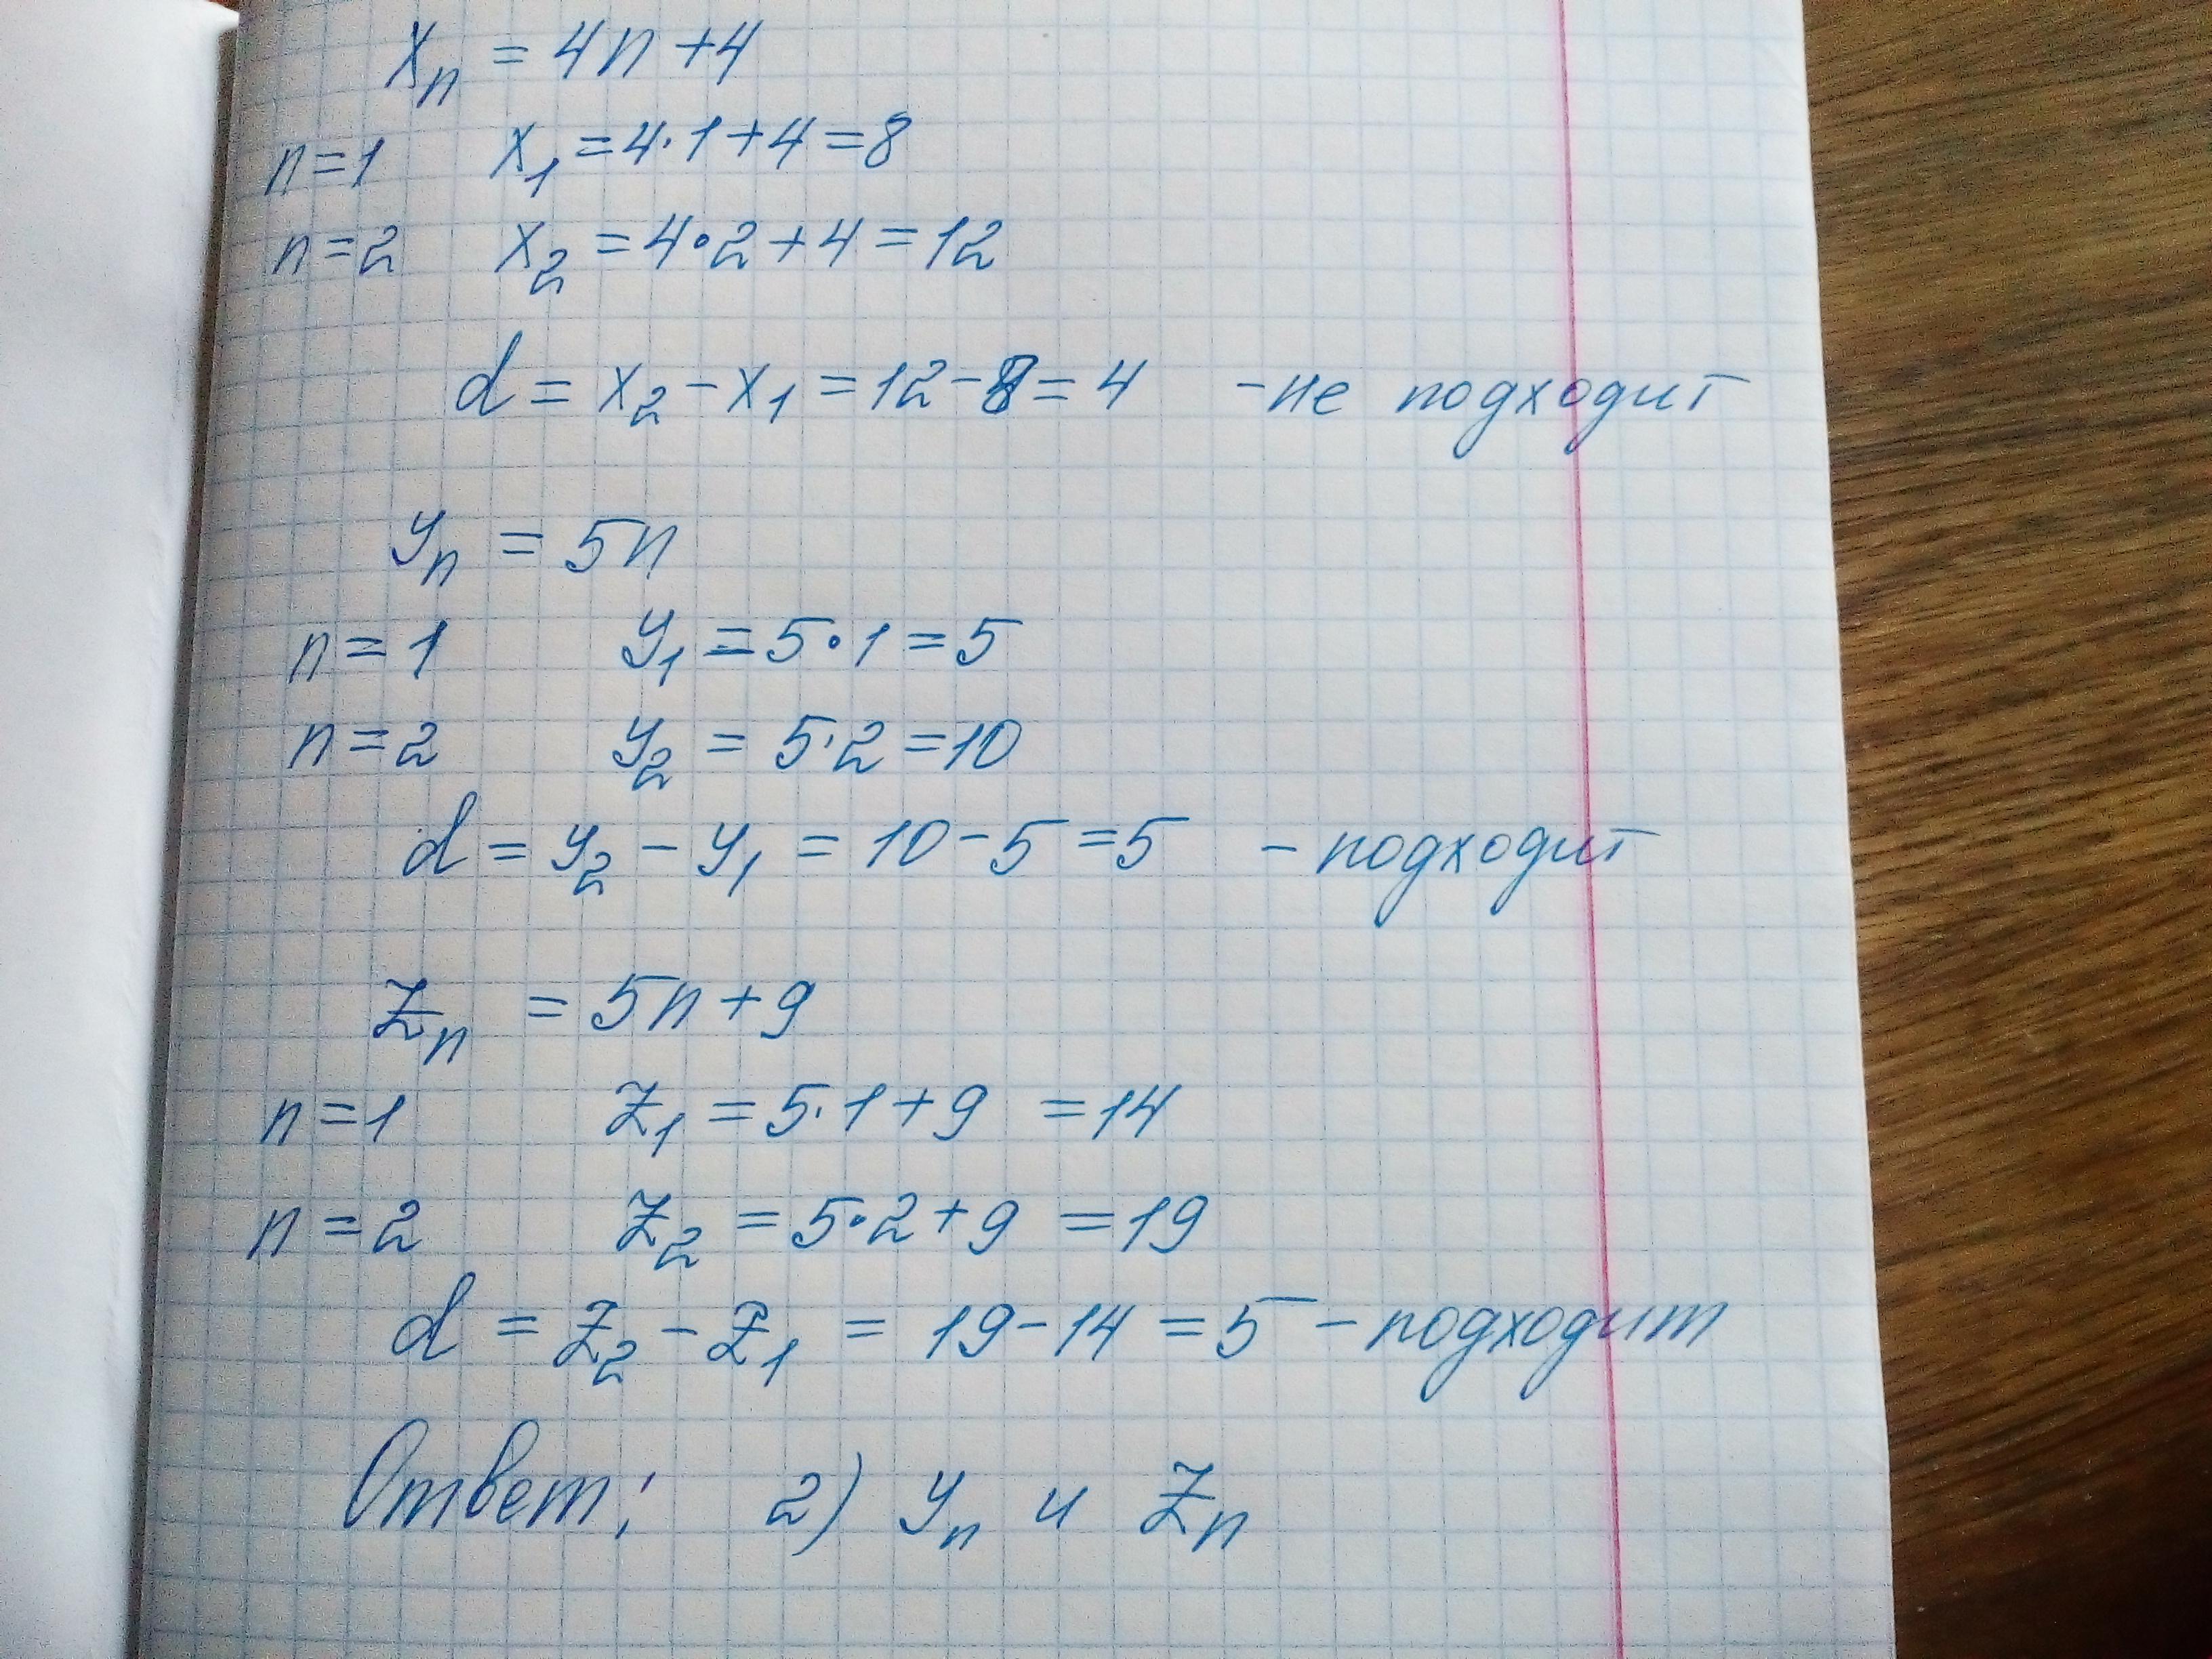 xₙ = 4n + 4
n = 1 x₁ = 4·1 + 4 = 8
n = 2 x₂ = 4·2 + 4 = 12
d = x₂ - x₁ = 12 - 8 = 4 - не подходит
yₙ = 5n
n = 1 y₁ = 5·1 = 5
n = 2 y₂ = 5·2 = 10
d = y₂ - y₁ = 10 - 5 = 5 - подходит
zₙ = 5n + 9
n = 1 z₁ = 5·1 + 9 = 14
n = 2 z₂ = 5·2 + 9 = 19
d = z₂ - z₁ = 19 - 14 = 5 - подходит
Ответ: 2) yₙ и zₙ